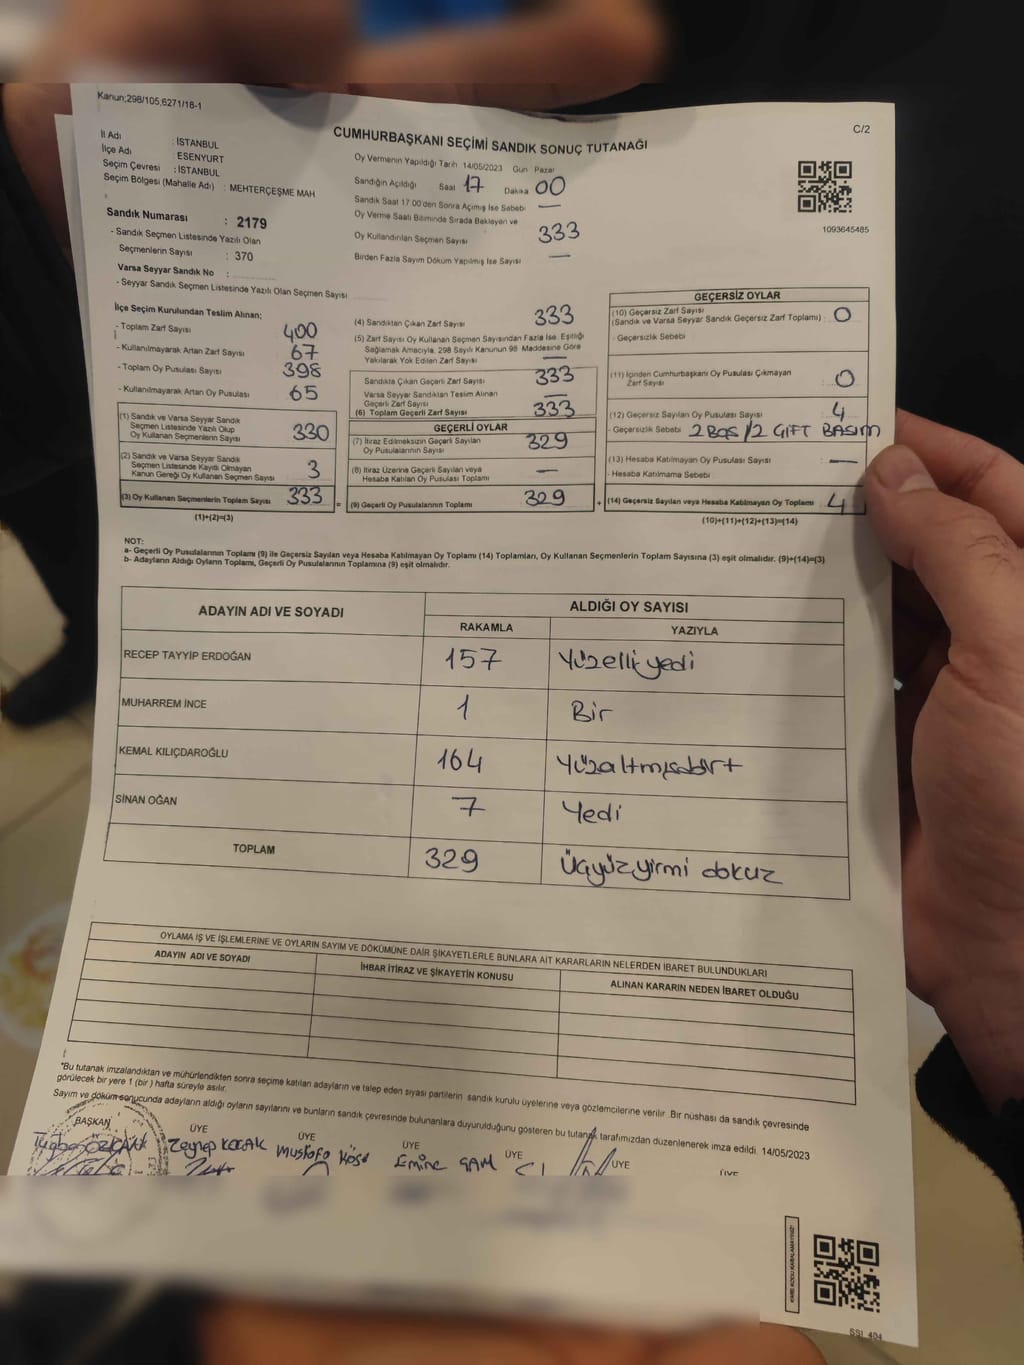 Kanun;298/105,6271/18-1
C/2
CUMHURBAŞKANI SEÇİMİ SANDIK SONUÇ TUTANAĞI
İl Adı : İSTANBUL
İlçe Adı : ESENYURT
Seçim Çevresi : İSTANBUL
Seçim Bölgesi (Mahalle Adı) : MEHTERÇEŞME MAH
Sandık Numarası : 2179
- Sandık Seçmen Listesinde Yazılı Olan
Seçmenlerin Sayısı : 370
Varsa Seyyar Sandık No :
- Seyyar Sandık Seçmen Listesinde Yazılı Olan Seçmen Sayısı
Oy Vermenin Yapıldığı Tarih 14/05/2023 Gun Pazar
Sandığın Açıldığı Saat 17 Dakika 00
Sandık Saat 17.00'den Sonra Açılmış İse Sebebi —
Oy Verme Saati Bitiminde Sırada Bekleyen ve
Oy Kullandırılan Seçmen Sayısı 333
Birden Fazla Sayım Döküm Yapılmış İse Sayısı —
1093645485
İlçe Seçim Kurulundan Teslim Alınan;
- Toplam Zarf Sayısı 400
- Kullanılmayarak Artan Zarf Sayısı 67
- Toplam Oy Pusulası Sayısı 398
- Kullanılmayarak Artan Oy Pusulası 65
(1) Sandık ve Varsa Seyyar Sandık
Seçmen Listesinde Yazılı Olup
Oy Kullanan Seçmenlerin Sayısı 330
(2) Sandık ve Varsa Seyyar Sandık
Seçmen Listesinde Kayıtlı Olmayan
Kanun Gereği Oy Kullanan Seçmen Sayısı 3
(3) Oy Kullanan Seçmenlerin Toplam Sayısı 333 =
(1)+(2)=(3)
(4) Sandıktan Çıkan Zarf Sayısı 333
(5) Zarf Sayısı Oy Kullanan Seçmen Sayısından Fazla İse, Eşitliği
Sağlamak Amacıyla, 298 Sayılı Kanunun 98. Maddesine Göre
Yakılarak Yok Edilen Zarf Sayısı —
Sandıkta Çıkan Geçerli Zarf Sayısı 333
Varsa Seyyar Sandıktan Teslim Alınan
Geçerli Zarf Sayısı —
(6) Toplam Geçerli Zarf Sayısı 333
GEÇERLİ OYLAR
(7) İtiraz Edilmeksizin Geçerli Sayılan
Oy Pusulalarının Sayısı 329
(8) İtiraz Üzerine Geçerli Sayılan veya
Hesaba Katılan Oy Pusulası Toplamı —
(9) Geçerli Oy Pusulalarının Toplamı 329 +
GEÇERSİZ OYLAR
(10) Geçersiz Zarf Sayısı
(Sandık ve Varsa Seyyar Sandık Geçersiz Zarf Toplamı) : 0
- Geçersizlik Sebebi
(11) İçinden Cumhurbaşkanı Oy Pusulası Çıkmayan
Zarf Sayısı : 0
(12) Geçersiz Sayılan Oy Pusulası Sayısı : 4
- Geçersizlik Sebebi 2 BOŞ / 2 ÇİFT BASIM
(13) Hesaba Katılmayan Oy Pusulası Sayısı : —
- Hesaba Katılmama Sebebi
(14) Geçersiz Sayılan veya Hesaba Katılmayan Oy Toplamı 4
(10)+(11)+(12)+(13)=(14)
NOT:
a- Geçerli Oy Pusulalarının Toplamı (9) ile Geçersiz Sayılan veya Hesaba Katılmayan Oy Toplamı (14) Toplamları, Oy Kullanan Seçmenlerin Toplam Sayısına (3) eşit olmalıdır. (9)+(14)=(3)
b- Adayların Aldığı Oyların Toplamı, Geçerli Oy Pusulalarının Toplamına (9) eşit olmalıdır.
ADAYIN ADI VE SOYADI ALDIĞI OY SAYISI
RAKAMLA YAZIYLA
RECEP TAYYİP ERDOĞAN 157 Yüzelli yedi
MUHARREM İNCE 1 Bir
KEMAL KILIÇDAROĞLU 164 Yüzaltmışdört
SİNAN OĞAN 7 Yedi
TOPLAM 329 Üçyüzyirmi dokuz
OYLAMA İŞ VE İŞLEMLERİNE VE OYLARIN SAYIM VE DÖKÜMÜNE DAİR ŞİKAYETLERLE BUNLARA AİT KARARLARIN NELERDEN İBARET BULUNDUKLARI
ADAYIN ADI VE SOYADI İHBAR İTİRAZ VE ŞİKAYETİN KONUSU ALINAN KARARIN NEDEN İBARET OLDUĞU
*Bu tutanak imzalandıktan ve mühürlendikten sonra seçime katılan adayların ve talep eden siyasi partilerin sandık kurulu üyelerine veya gözlemcilerine verilir. Bir nüshası da sandık çevresinde
görülecek bir yere 1 (bir) hafta süreyle asılır.
Sayım ve döküm sonucunda adayların aldığı oyların sayılarını ve bunların sandık çevresinde bulunanlara duyurulduğunu gösteren bu tutanak tarafımızdan düzenlenerek imza edildi. 14/05/2023
BAŞKAN ÜYE ÜYE ÜYE ÜYE ÜYE ÜYE
Zeynep KOÇAK Mustafa Köse Emine
SSI_404